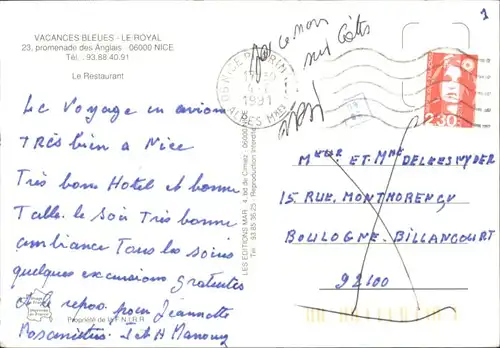 VACANCES BLEUES - LE ROYAL
23, promenade des Anglais 06000 NICE
Tél. : 93.88.40.91
Le Restaurant
Le Voyage en avion
TRÈS bien a Nice
Très bon Hotel et bonne
Table. le soir Très bonne
ambiance Tous les soirs
quelques excursions gratuites
et le repos. pour Jeannette
Propriété de la F.N.I.R.R.
LES EDITIONS MAR, 4, bd de Cimiez, 06000
Tél. 93.85.36.25 - Reproduction interdite
06 NICE
1991
ALPES MMES
par ce nom
sur Côtés
1
2,30
Meur ET Mme DELEESNYDER
15 RUE, MONTMORENCY
BOULOGNE. BILLANCOURT
92100